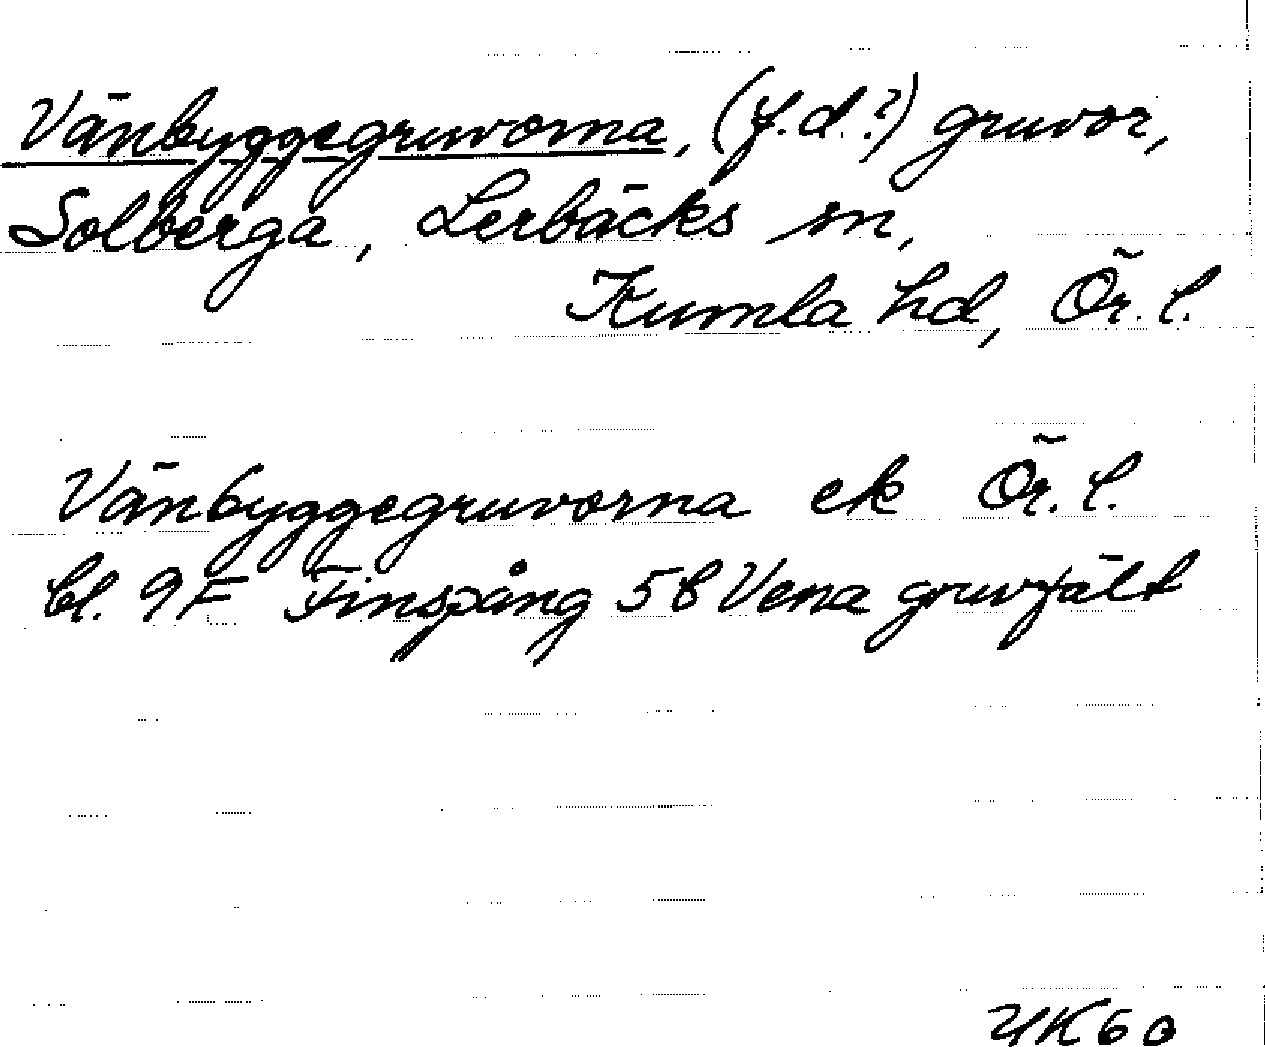 Vänbyggegruvorna, (f.d.?) gruvor,
Solberga, Lerbäcks sn,
Kumla hd, Ör. l.
Vänbyggegruvorna ek Ör. l.
bl. 9F Finspång 5b Vena gruvfält